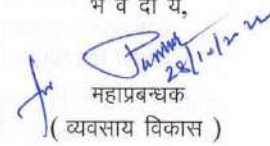 भ व दी य,
28/10/2022
महाप्रबन्धक
( व्यवसाय विकास )